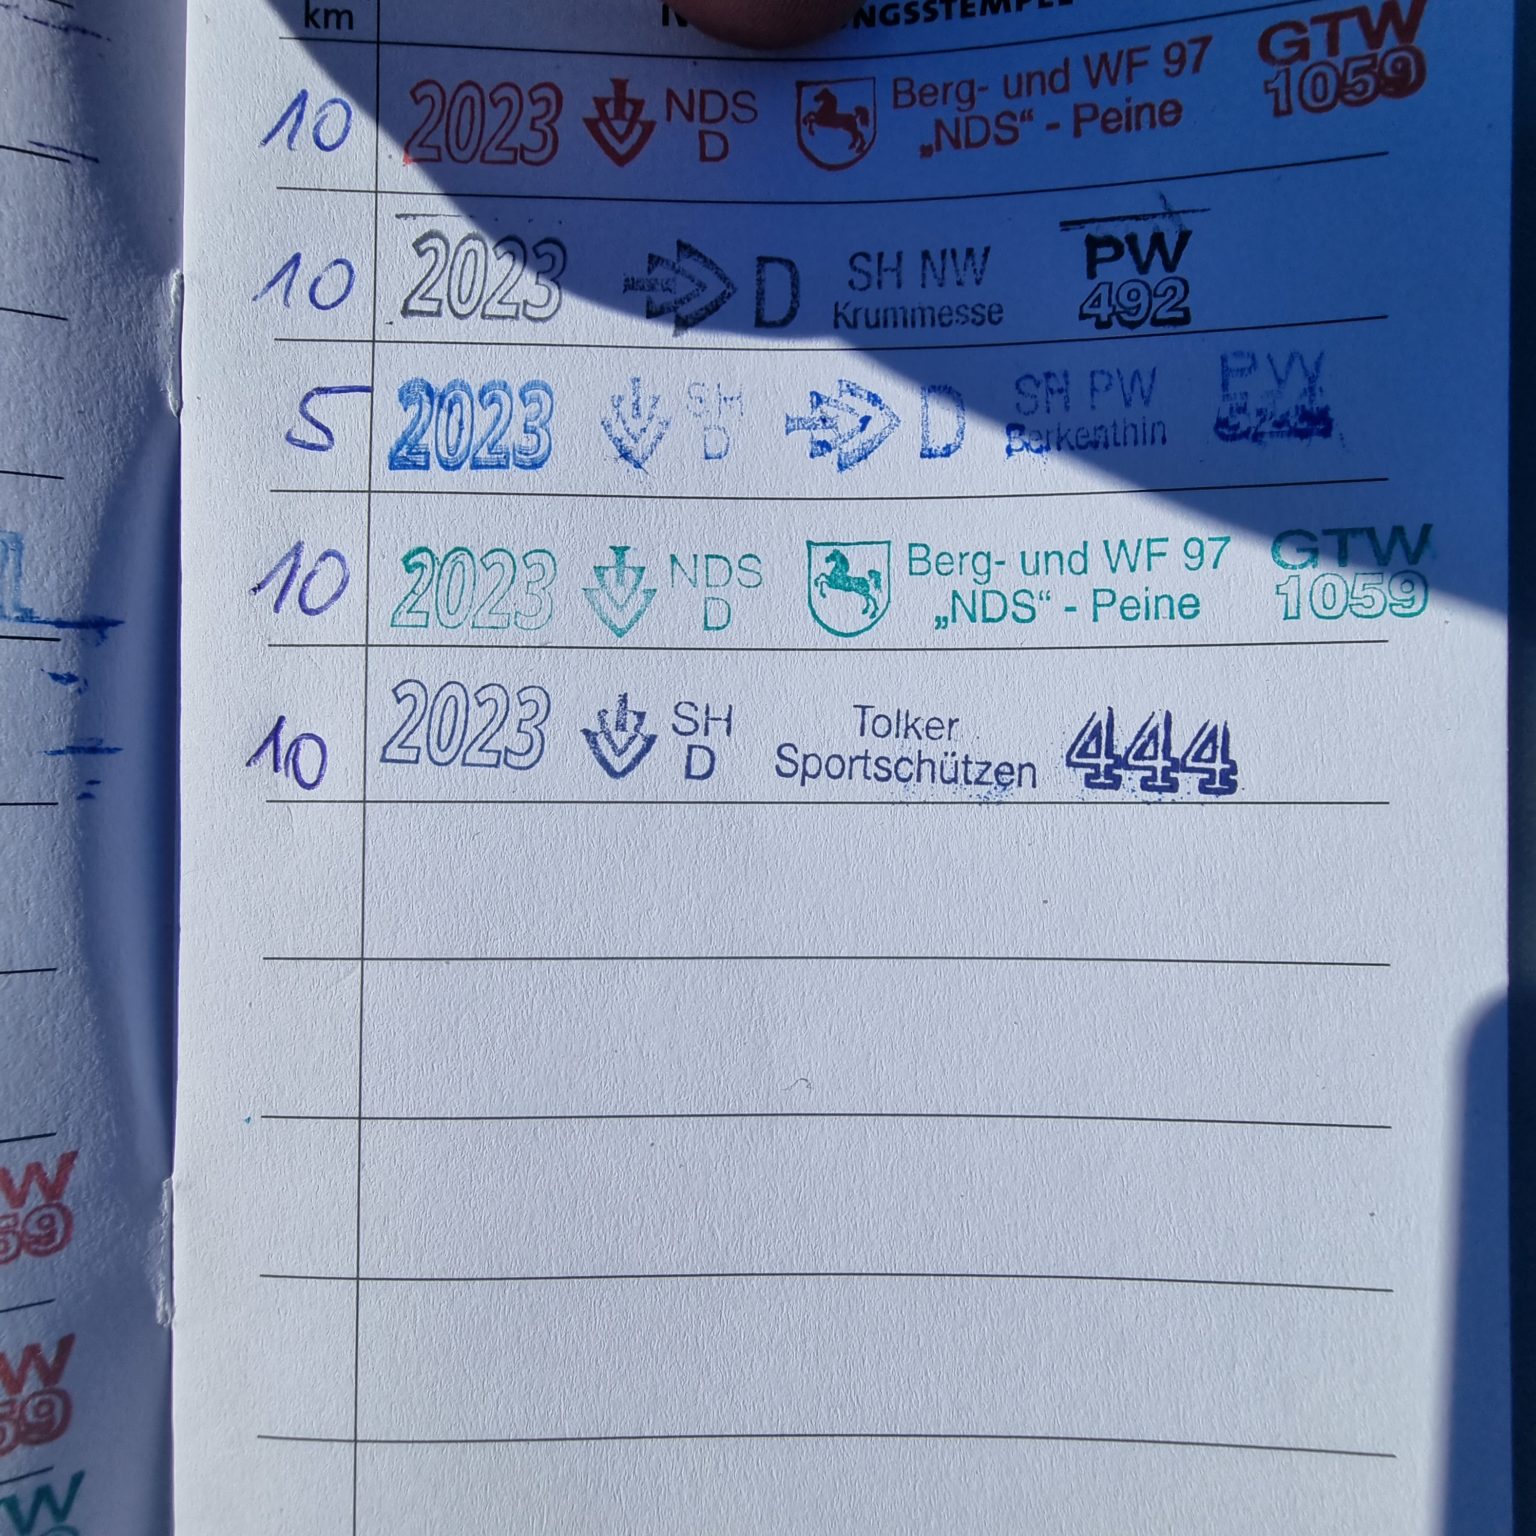 km
10 2023 NDS D Berg- und WF 97 „NDS“ - Peine GTW 1059
10 2023 D SH NW Krummesse PW 492
5 2023 SH D D SH PW Berkenthin PW
10 2023 NDS D Berg- und WF 97 „NDS“ - Peine GTW 1059
10 2023 SH D Tolker Sportschützen 444
W
59
W
59
W